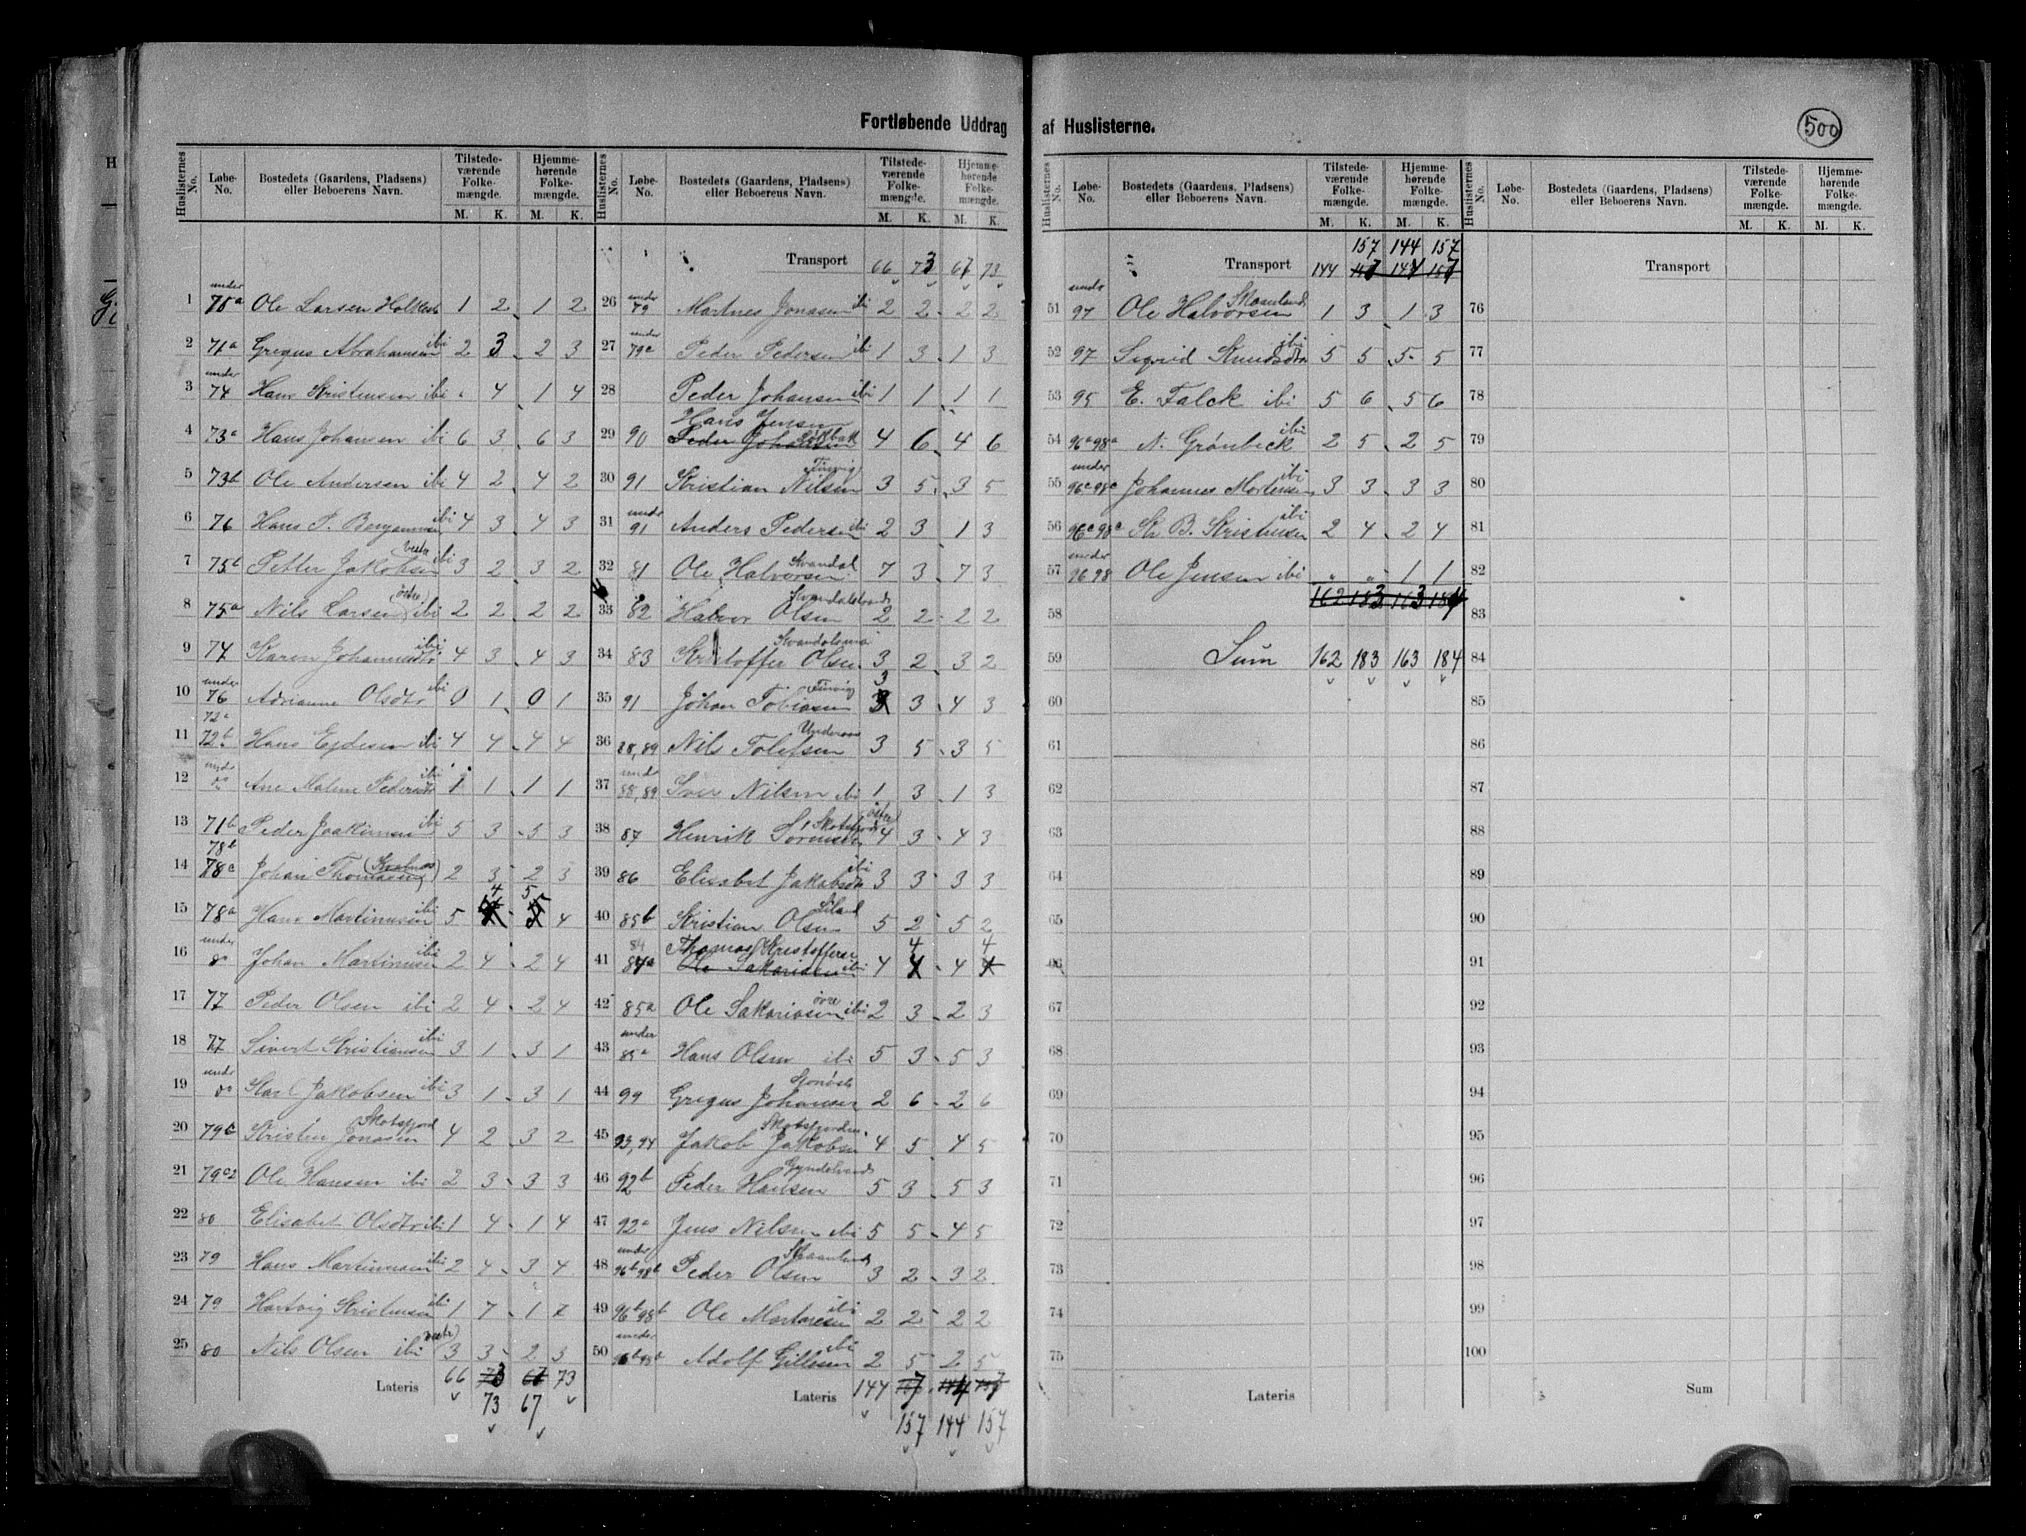 Fortløbende Uddrag af Huslisterne. 500
Huslisternes No. Løbe-No. Bostedets (Gaardens, Pladsens) eller Beboerens Navn. Tilstedeværende Folkemængde. M. K. Hjemmehørende Folkemængde. M. K.
1 under 75a Ole Larsen 1 2 1 2
2 71a Gregus Abrahamsen ibi 2 3 2 3
3 under 74 Hans Kristensen ibi " 4 1 4
4 73a Hans Johansen ibi 6 3 6 3
5 73b Ole Andersen ibi 4 2 4 2
6 76 Hans P. Benjaminsen ibi 4 3 4 3
7 75b Petter Jakobsen (vestre) ibi 3 2 3 2
8 75a Nils Larsen (östre) ibi 2 2 2 2
9 74 Karen Johannesdtr ibi 4 3 4 3
10 under 76 Adrianne Olsdtr ibi 0 1 0 1
11 72a 72b Hans Ejdesen ibi 4 4 4 4
12 under do Ane Malene Pedersdtr ibi 1 1 1 1
13 71b Peder Joakimsen ibi 5 3 5 3
14 78b 78c Johan Thomassen 2 3 2 3
15 78a Hans Martinussen ibi 5 4 5 4
16 under do Johan Martinussen ibi 2 4 2 4
17 77 Peder Olsen ibi 2 4 2 4
18 77 Sivert Kristiansen ibi 3 1 3 1
19 under do Karl Jakobsen ibi 3 1 3 1
20 79b Kristen Jonassen Skotsfjord 4 2 3 2
21 79c2 Ole Hansen ibi 2 3 3 3
22 80 Elisabet Olsdtr ibi 1 4 1 4
23 79 Hans Martinussen ibi 2 4 3 4
24 79 Hartvig Kristensen ibi 1 7 1 7
25 80 Nils Olsen ibi (vestre) 3 3 2 3
Lateris 66 73 67 73
73 67
Huslisternes No. Løbe-No. Bostedets (Gaardens, Pladsens) eller Beboerens Navn. Tilstedeværende Folkemængde. M. K. Hjemmehørende Folkemængde. M. K.
Transport 66 73 67 73
26 under 79 Martnes Jonasen ibi 2 2 2 2
27 under 79c Peder Pedersen ibi 1 3 1 3
28 Peder Johansen ibi 1 1 1 1
29 90 Hans Jensen Peder Johansen 4 6 4 6
30 91 Kristian Nilsen Finvig 3 5 3 5
31 under 91 Anders Pedersen ibi 2 3 1 3
32 81 Ole Halvorsen Kvandal 7 3 7 3
33 82 Halvor Olsen Kvandalstrand 2 2 2 2
34 83 Kristoffer Olsen 3 2 3 2
35 91 Johan Tobiasen Finvig 3 3 4 3
36 88,89 Nils Tolefsen 3 5 3 5
37 under 88,89 Iver Nilsen ibi 1 3 1 3
38 87 Henrik Sörensen Skotsfjord östre 4 3 4 3
39 86 Elisabet Jakobsdtr ibi 3 3 3 3
40 85b Kristian Olsen 5 2 5 2
41 84 84a Thomas Kristoffersen Ole Sakariasen ibi 4 4 4 4
42 85a Ole Sakariasen övre ibi 2 3 2 3
43 under 85a Hans Olsen ibi 5 3 5 3
44 99 Gregus Johansen 2 6 2 6
45 93,94 Jakob Jakobsen Skotsfjorden 4 5 4 5
46 92b Peder Hansen 5 3 5 3
47 92a Jens Nilsen ibi 5 5 4 5
48 under 96b 98b Peder Olsen Skaanland 3 2 3 2
49 96b 98b Ole Mortensen ibi 2 2 2 2
50 under 96b 98b Adolf Gillesen ibi 2 5 2 5
Lateris 144 157 144 157
157 144 157
Huslisternes No. Løbe-No. Bostedets (Gaardens, Pladsens) eller Beboerens Navn. Tilstedeværende Folkemængde. M. K. Hjemmehørende Folkemængde. M. K.
157 144 157
Transport 144 157 144 157
51 under 97 Ole Halvorsen Skaanland 1 3 1 3
52 97 Sigrid Knudsdtr ibi 5 5 5 5
53 95 E. Falck ibi 5 6 5 6
54 96a 98a N. Grönbeck ibi 2 5 2 5
55 under 96c 98c Johannes Mortensen ibi 3 3 3 3
56 96c 98c Kr B. Kristensen ibi 2 4 2 4
57 under 96 98 Ole Jensen ibi " " 1 1
58 162 183 163 184
59 Sum 162 183 163 184
60
61
62
63
64
65
66
67
68
69
70
71
72
73
74
75
Lateris
Huslisternes No. Løbe-No. Bostedets (Gaardens, Pladsens) eller Beboerens Navn. Tilstedeværende Folkemængde. M. K. Hjemmehørende Folkemængde. M. K.
Transport
76
77
78
79
80
81
82
83
84
85
86
87
88
89
90
91
92
93
94
95
96
97
98
99
100
Sum